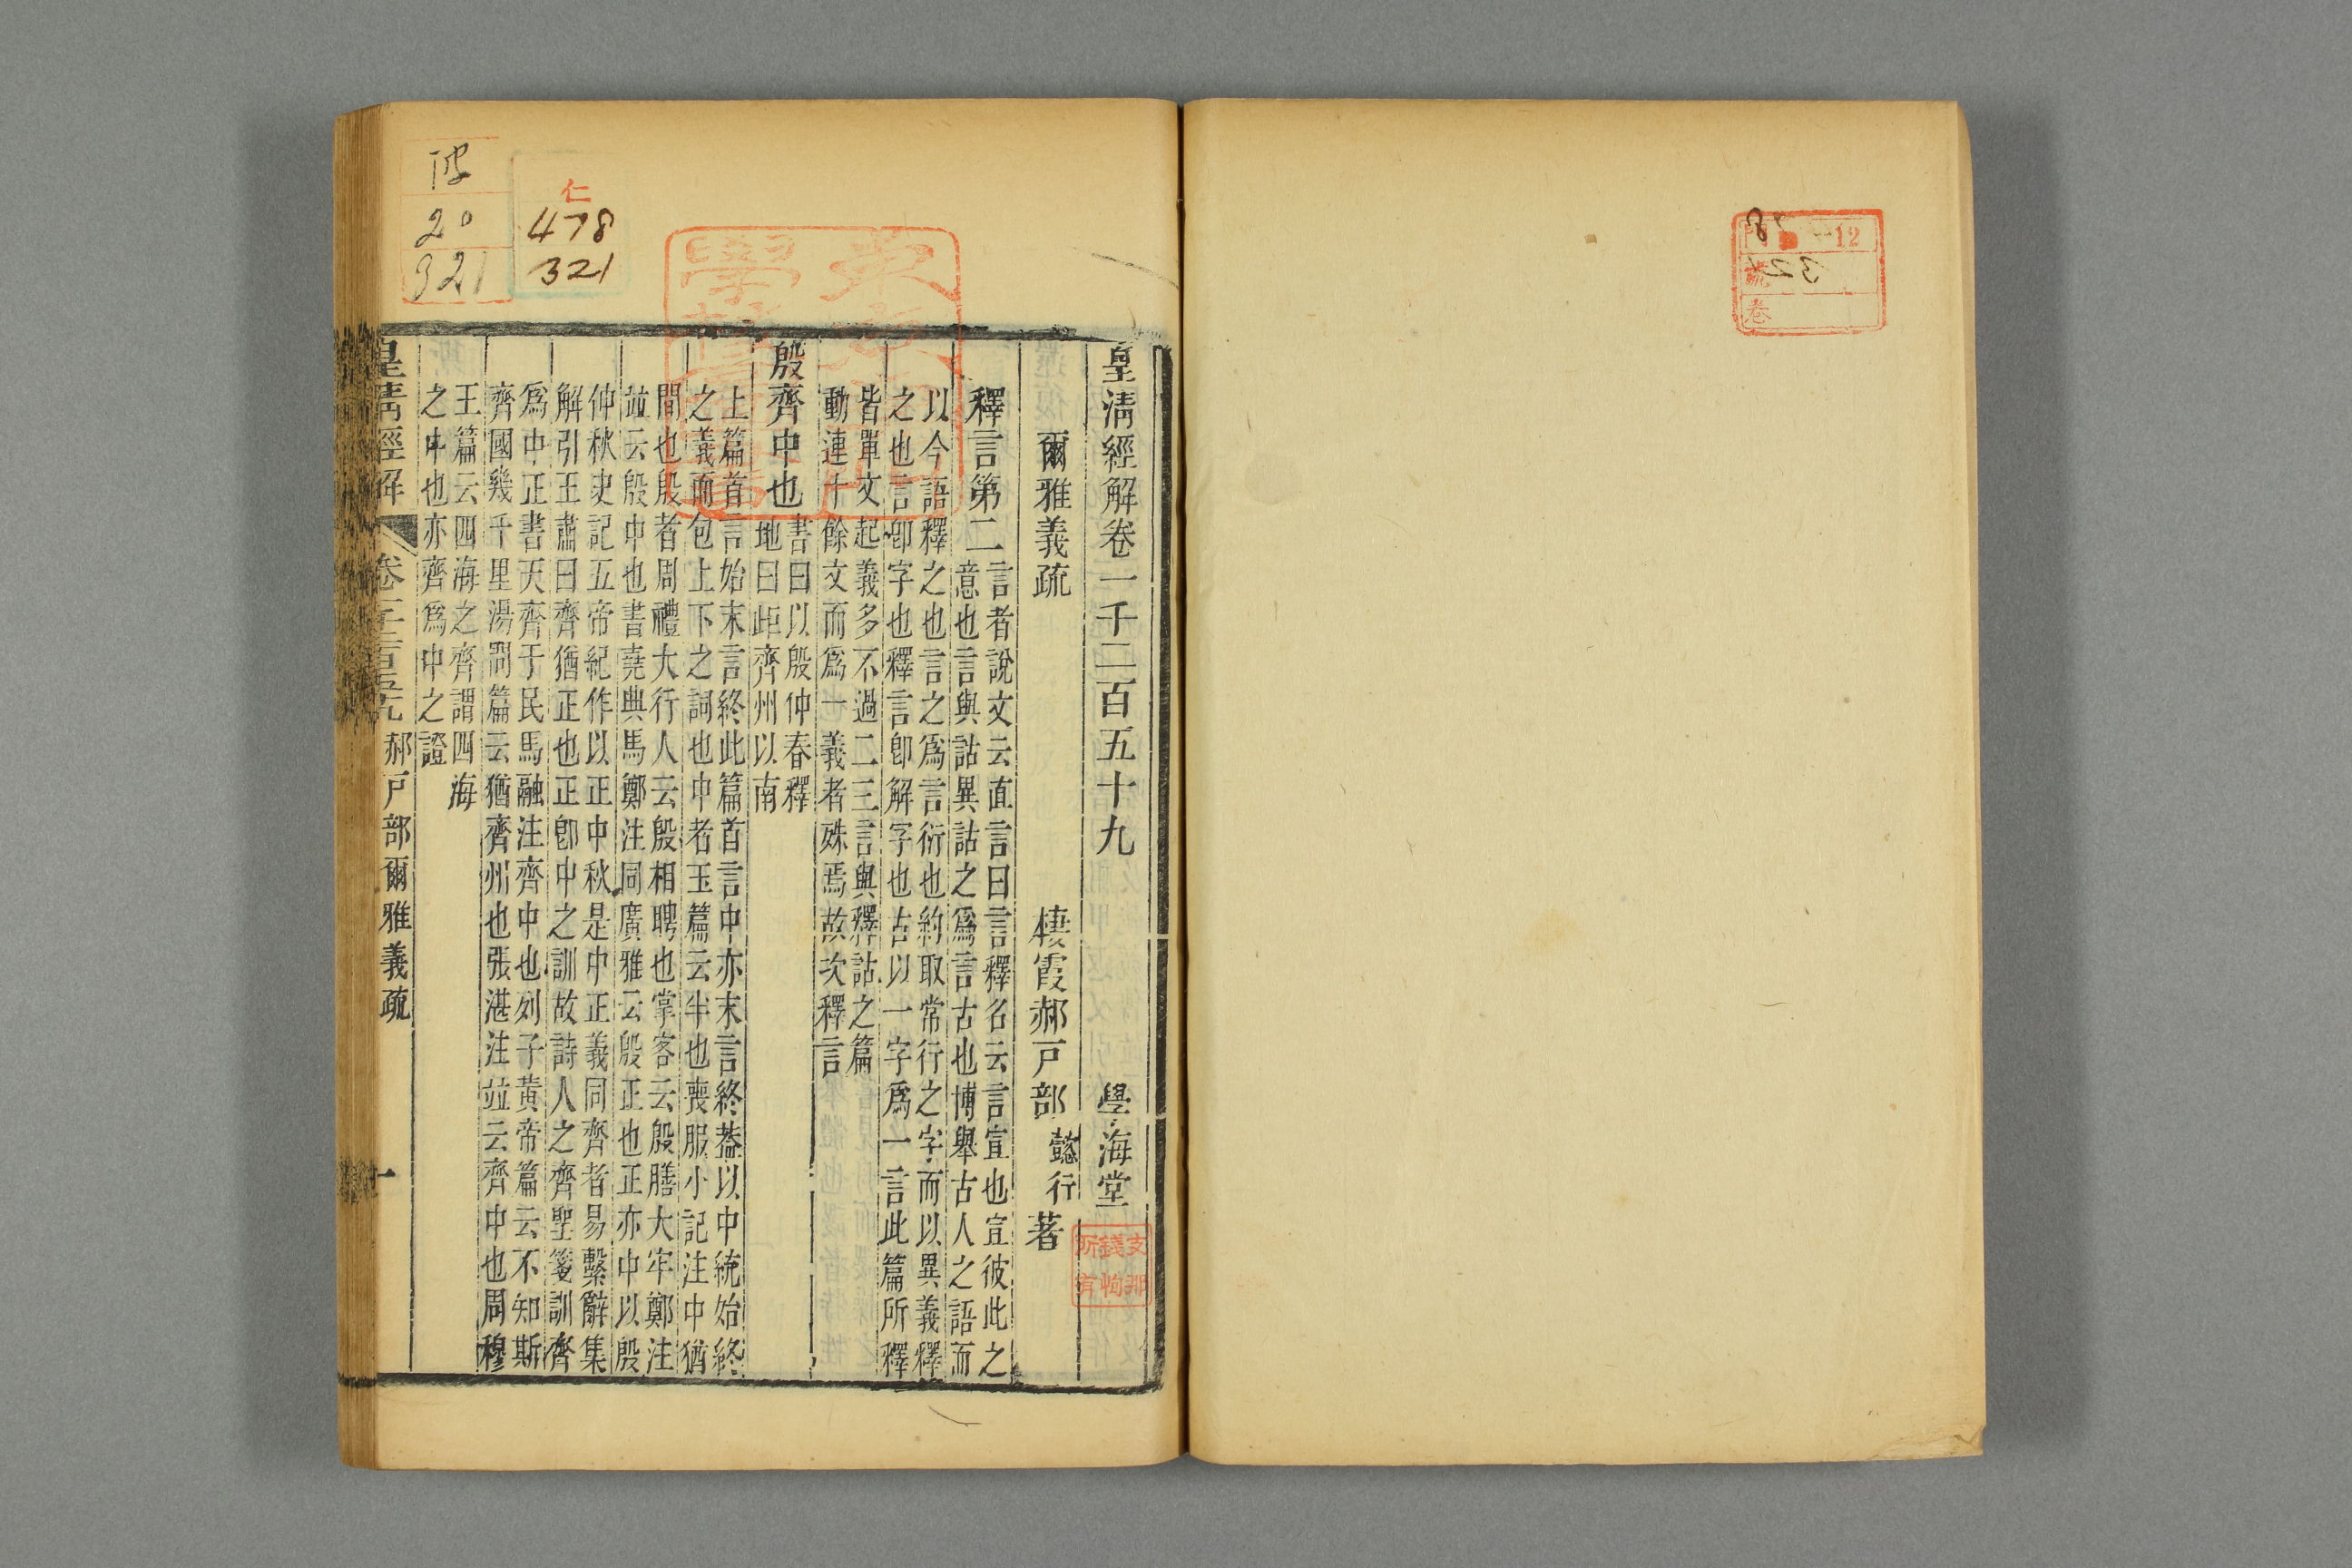 皇清經解卷一千二百五十九
學海堂
爾雅義疏
棲霞郝戸部
懿行
著
釋言第二
言者說文云直言曰言釋名云言宣也宣彼此之
意也言與詁異詁之爲言古也博舉古人之語而
以今語釋之也言之爲言衍也約取常行之字而以異義釋
之也言卽字也釋言卽解字也古以一字爲一言此篇所釋
皆單文起義多不過二三言與釋詁之篇
動連十餘文而爲一義者殊焉故次釋言
殷齊中也
書曰以殷仲春釋
地曰岠齊州以南
上篇首言始末言終此篇首言中亦末言終葢以中統始終
之義而包上下之詞也中者玉篇云半也喪服小記注中猶
間也殷者周禮大行人云殷相聘也掌客云殷膳大牢鄭注
竝云殷中也書堯典馬鄭注同廣雅云殷正也正亦中以殷
仲秋史記五帝紀作以正中秋是中正義同齊者易繫辭集
解引王肅曰齊猶正也正卽中之訓故詩人之齊聖箋訓齊
爲中正書天齊于民馬融注齊中也列子黃帝篇云不知斯
齊國幾千里湯問篇云猶齊州也張湛注竝云齊中也周穆
王篇云四海之齊謂四海
之中也亦齊爲中之證
皇清經解
卷一千二百五十九
郝戸部爾雅義疏
一
仁
478
321
20
321
支那
錢恂
所有
12
號
卷